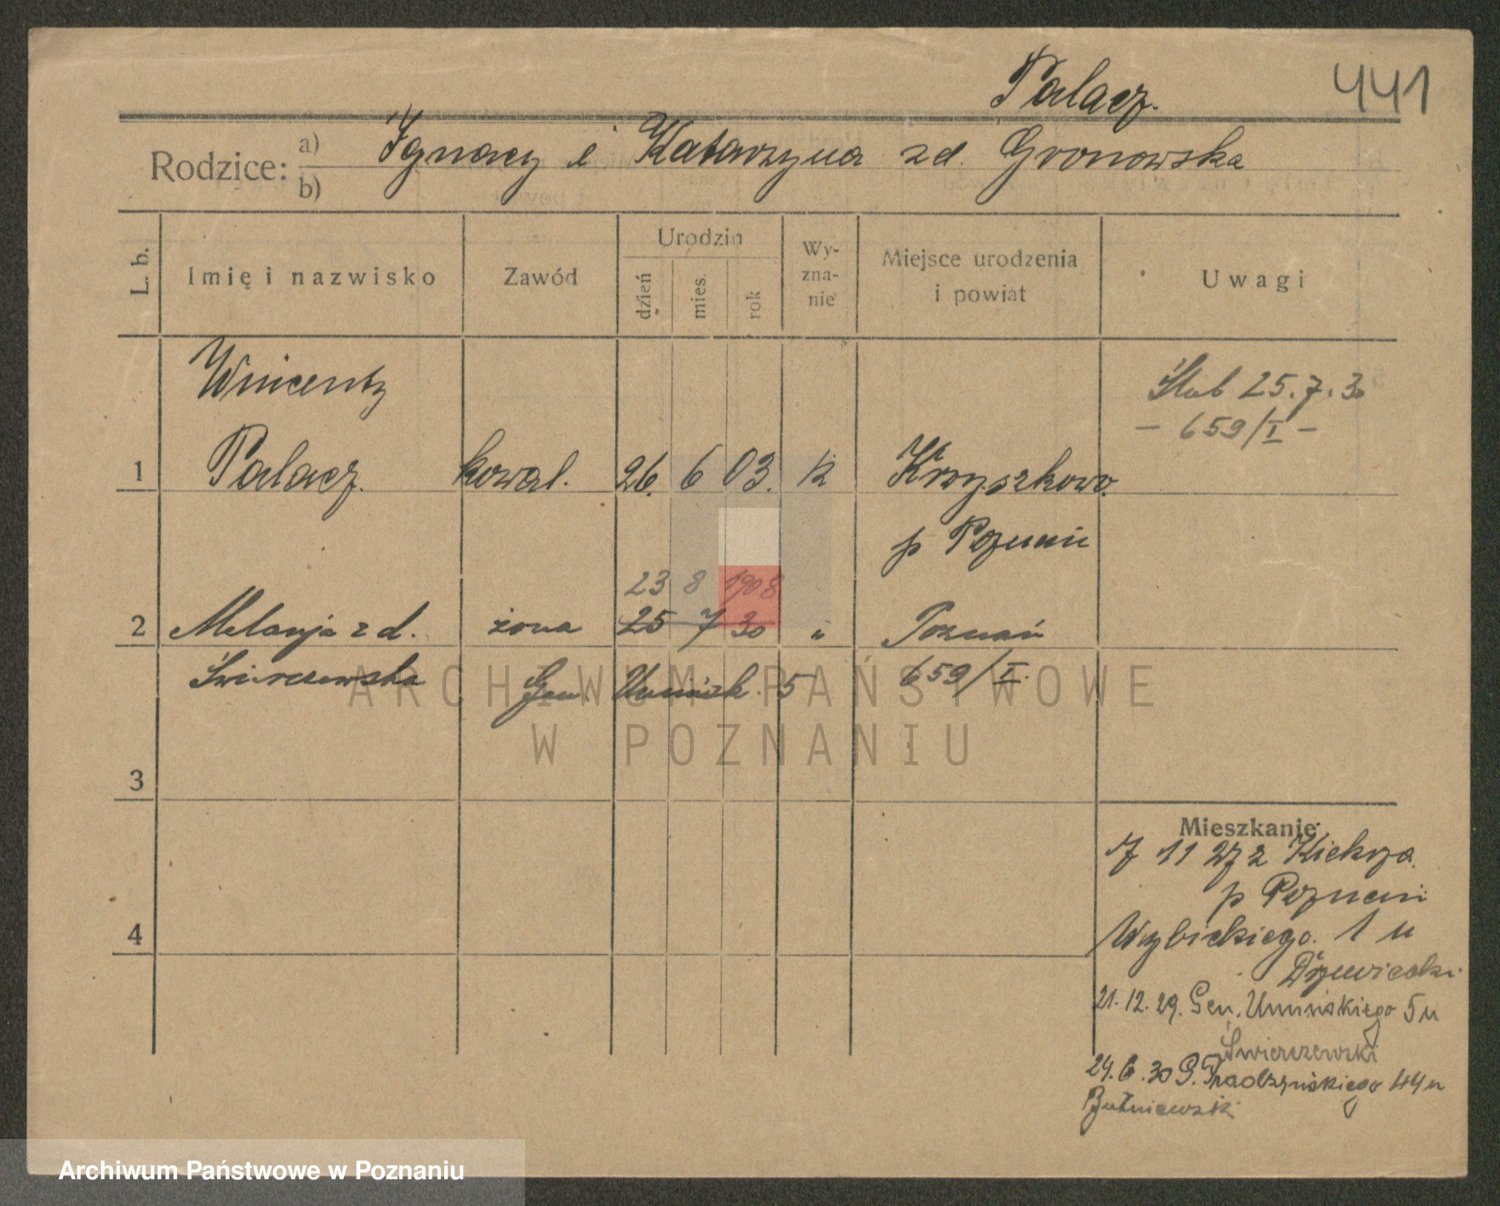 Palacz.
441
Rodzice: a) Ignacy i Katarzyna zd. Gronowska
b)
L. b.
Imię i nazwisko
Zawód
Urodzin
dzień
mies.
rok
Wy-
zna-
nie
Miejsce urodzenia
i powiat
Uwagi
Wincenty
Ślub 25.7.30
- 659/I -
1 Palacz. kowal. 26. 6 03. k Krzyszkowo.
p Poznań
23 8 1908
2 Melanja z d. żona 25 7 30 " Poznań
Świerczewska Gen. Umińsk. 5 659/I.
3
4
Mieszkanie
7 11 27 z Kiekrza
p Poznań
Wybickiego. 1 u
Drzewiecki
21.12.29. Gen. Umińskiego 5 u
Świerczewski
24.6.30 G. Prądzyńskiego 44 u
Butniewski
ARCHIWUM PAŃSTWOWE
W POZNANIU
Archiwum Państwowe w Poznaniu